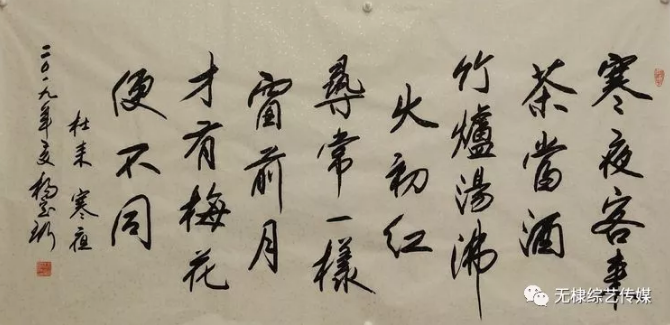 寒夜客来
茶當酒
竹爐湯沸
火初红
尋常一樣
窗前月
才有梅花
便不同
杜耒 寒夜
二〇一九年夏 杨
无棣综艺传媒